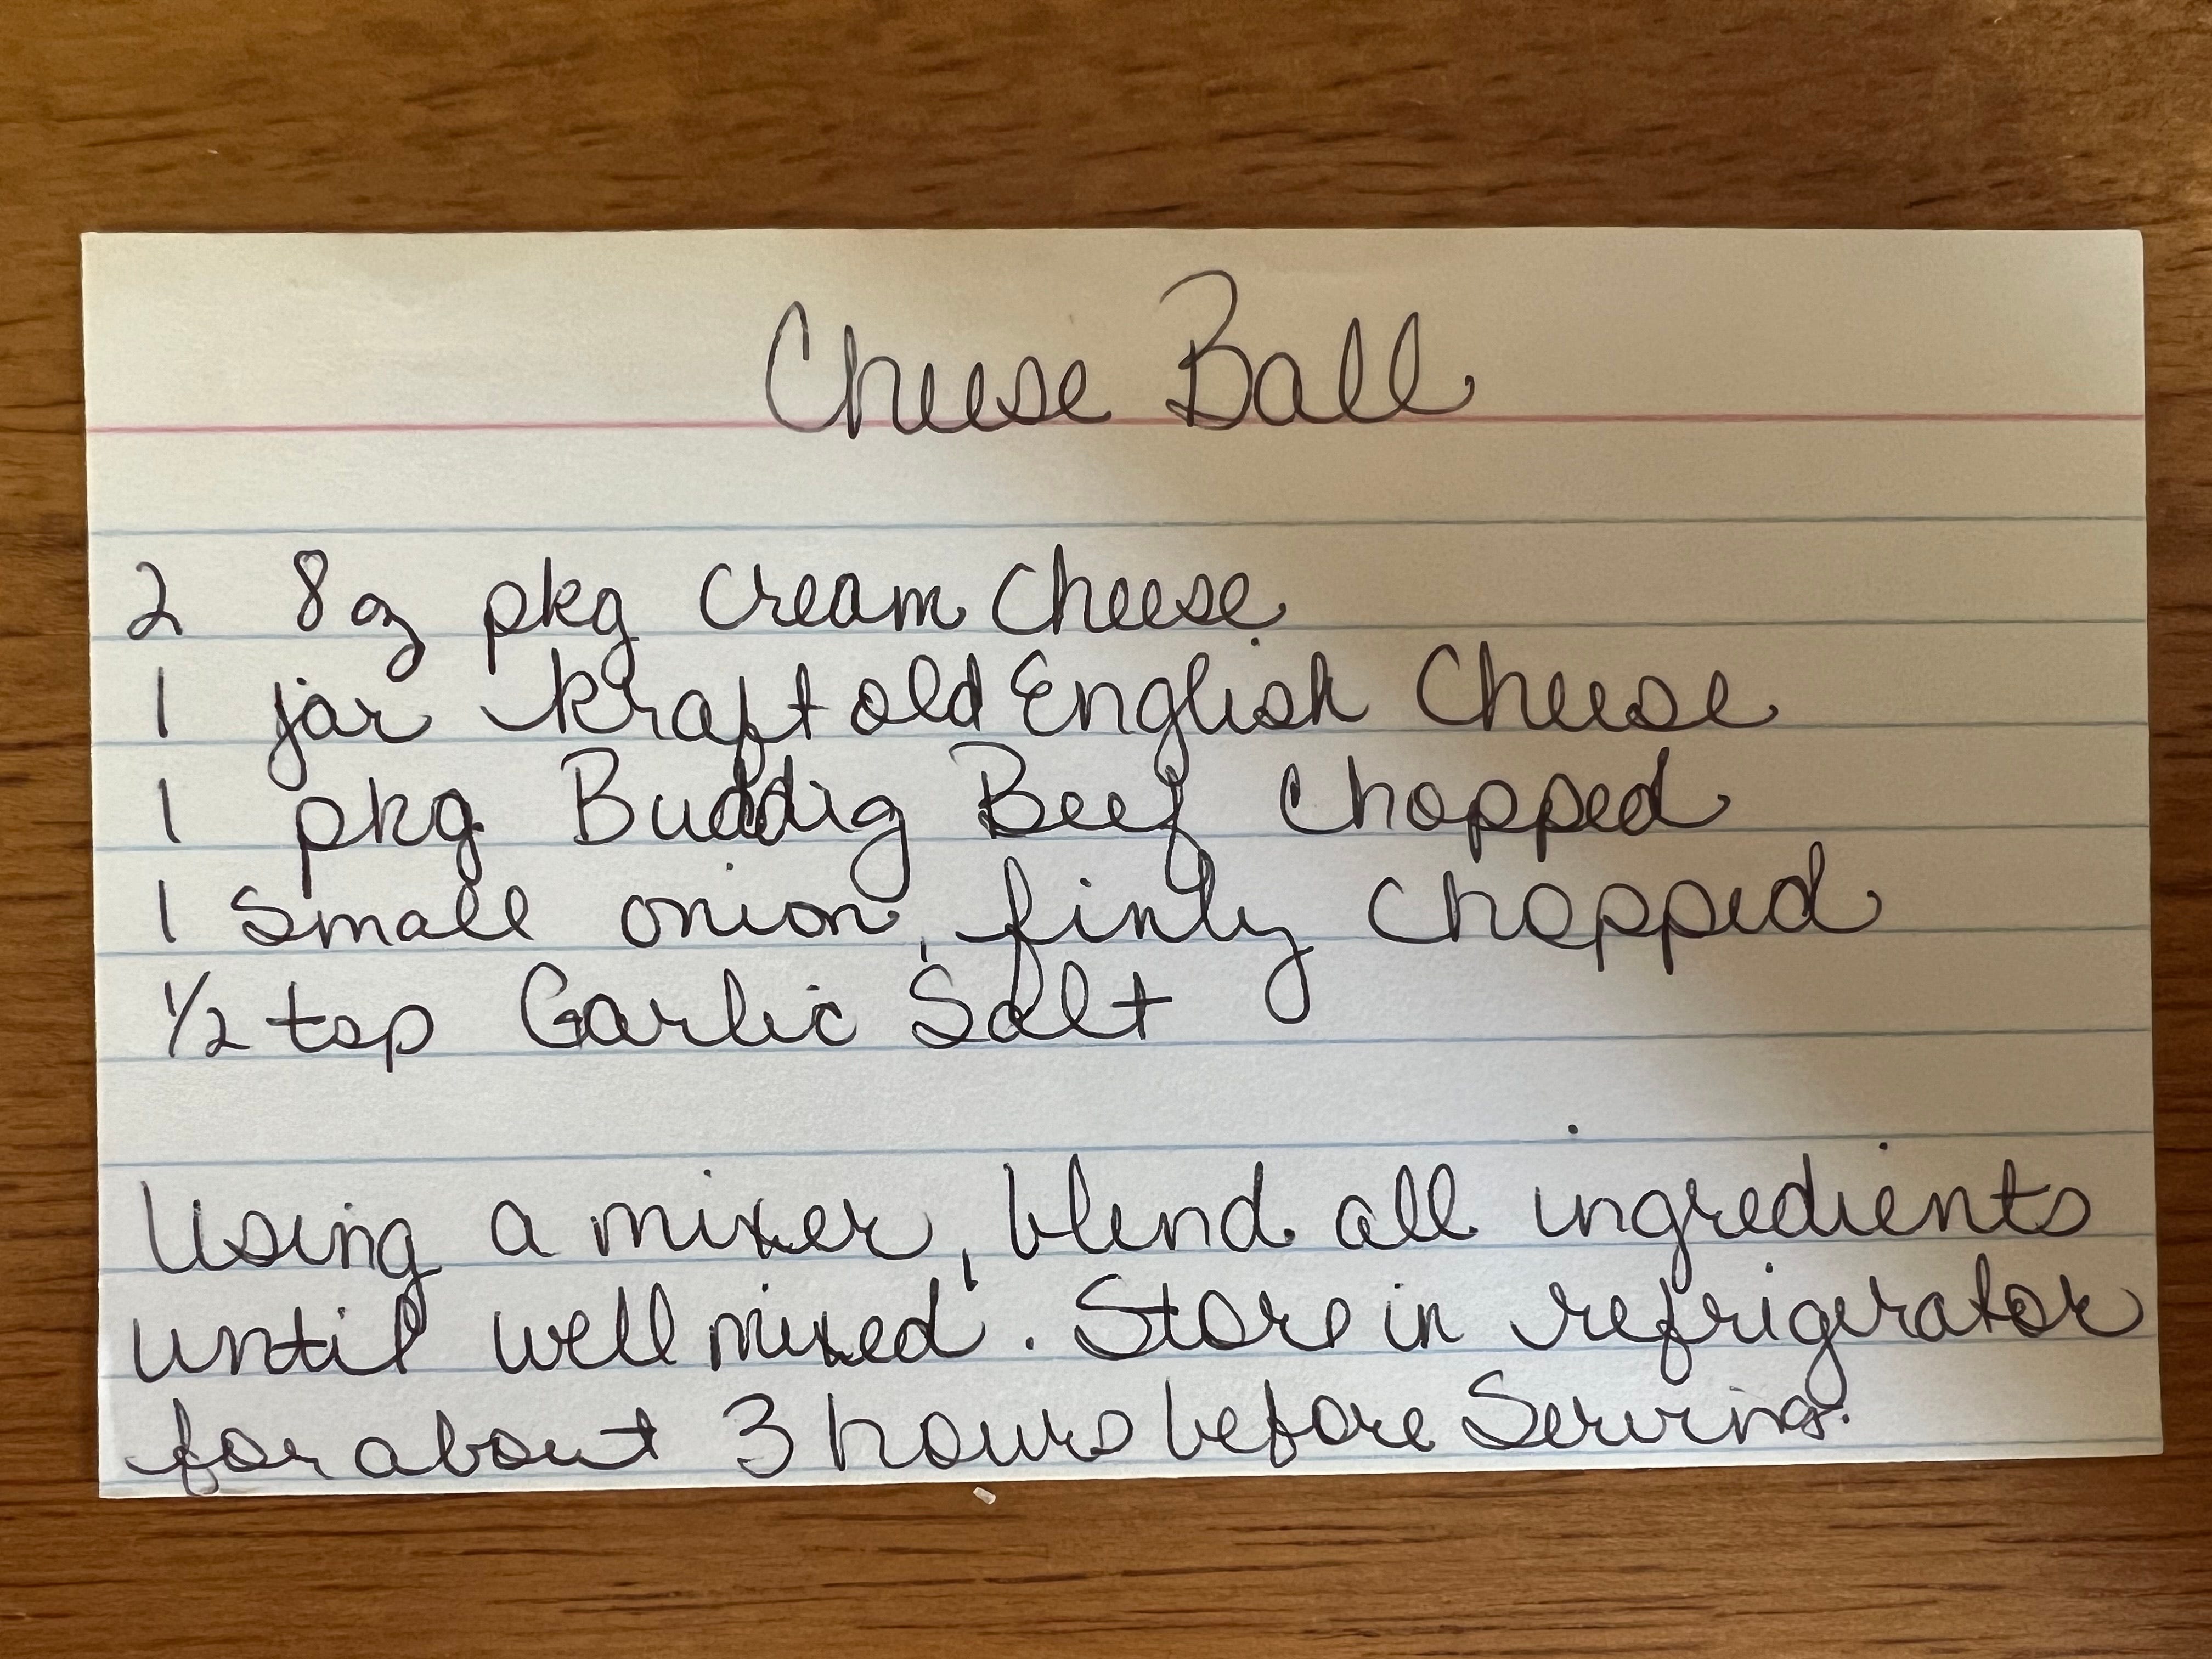 Cheese Ball
2 8 oz pkg Cream Cheese
1 jar Kraft old English Cheese
1 pkg Buddig Beef Chopped
1 Small onion, finly Chopped
1/2 tsp Garlic Salt
Using a mixer, blend all ingredients
until well mixed. Store in refrigerator
for about 3 hours before Serving.